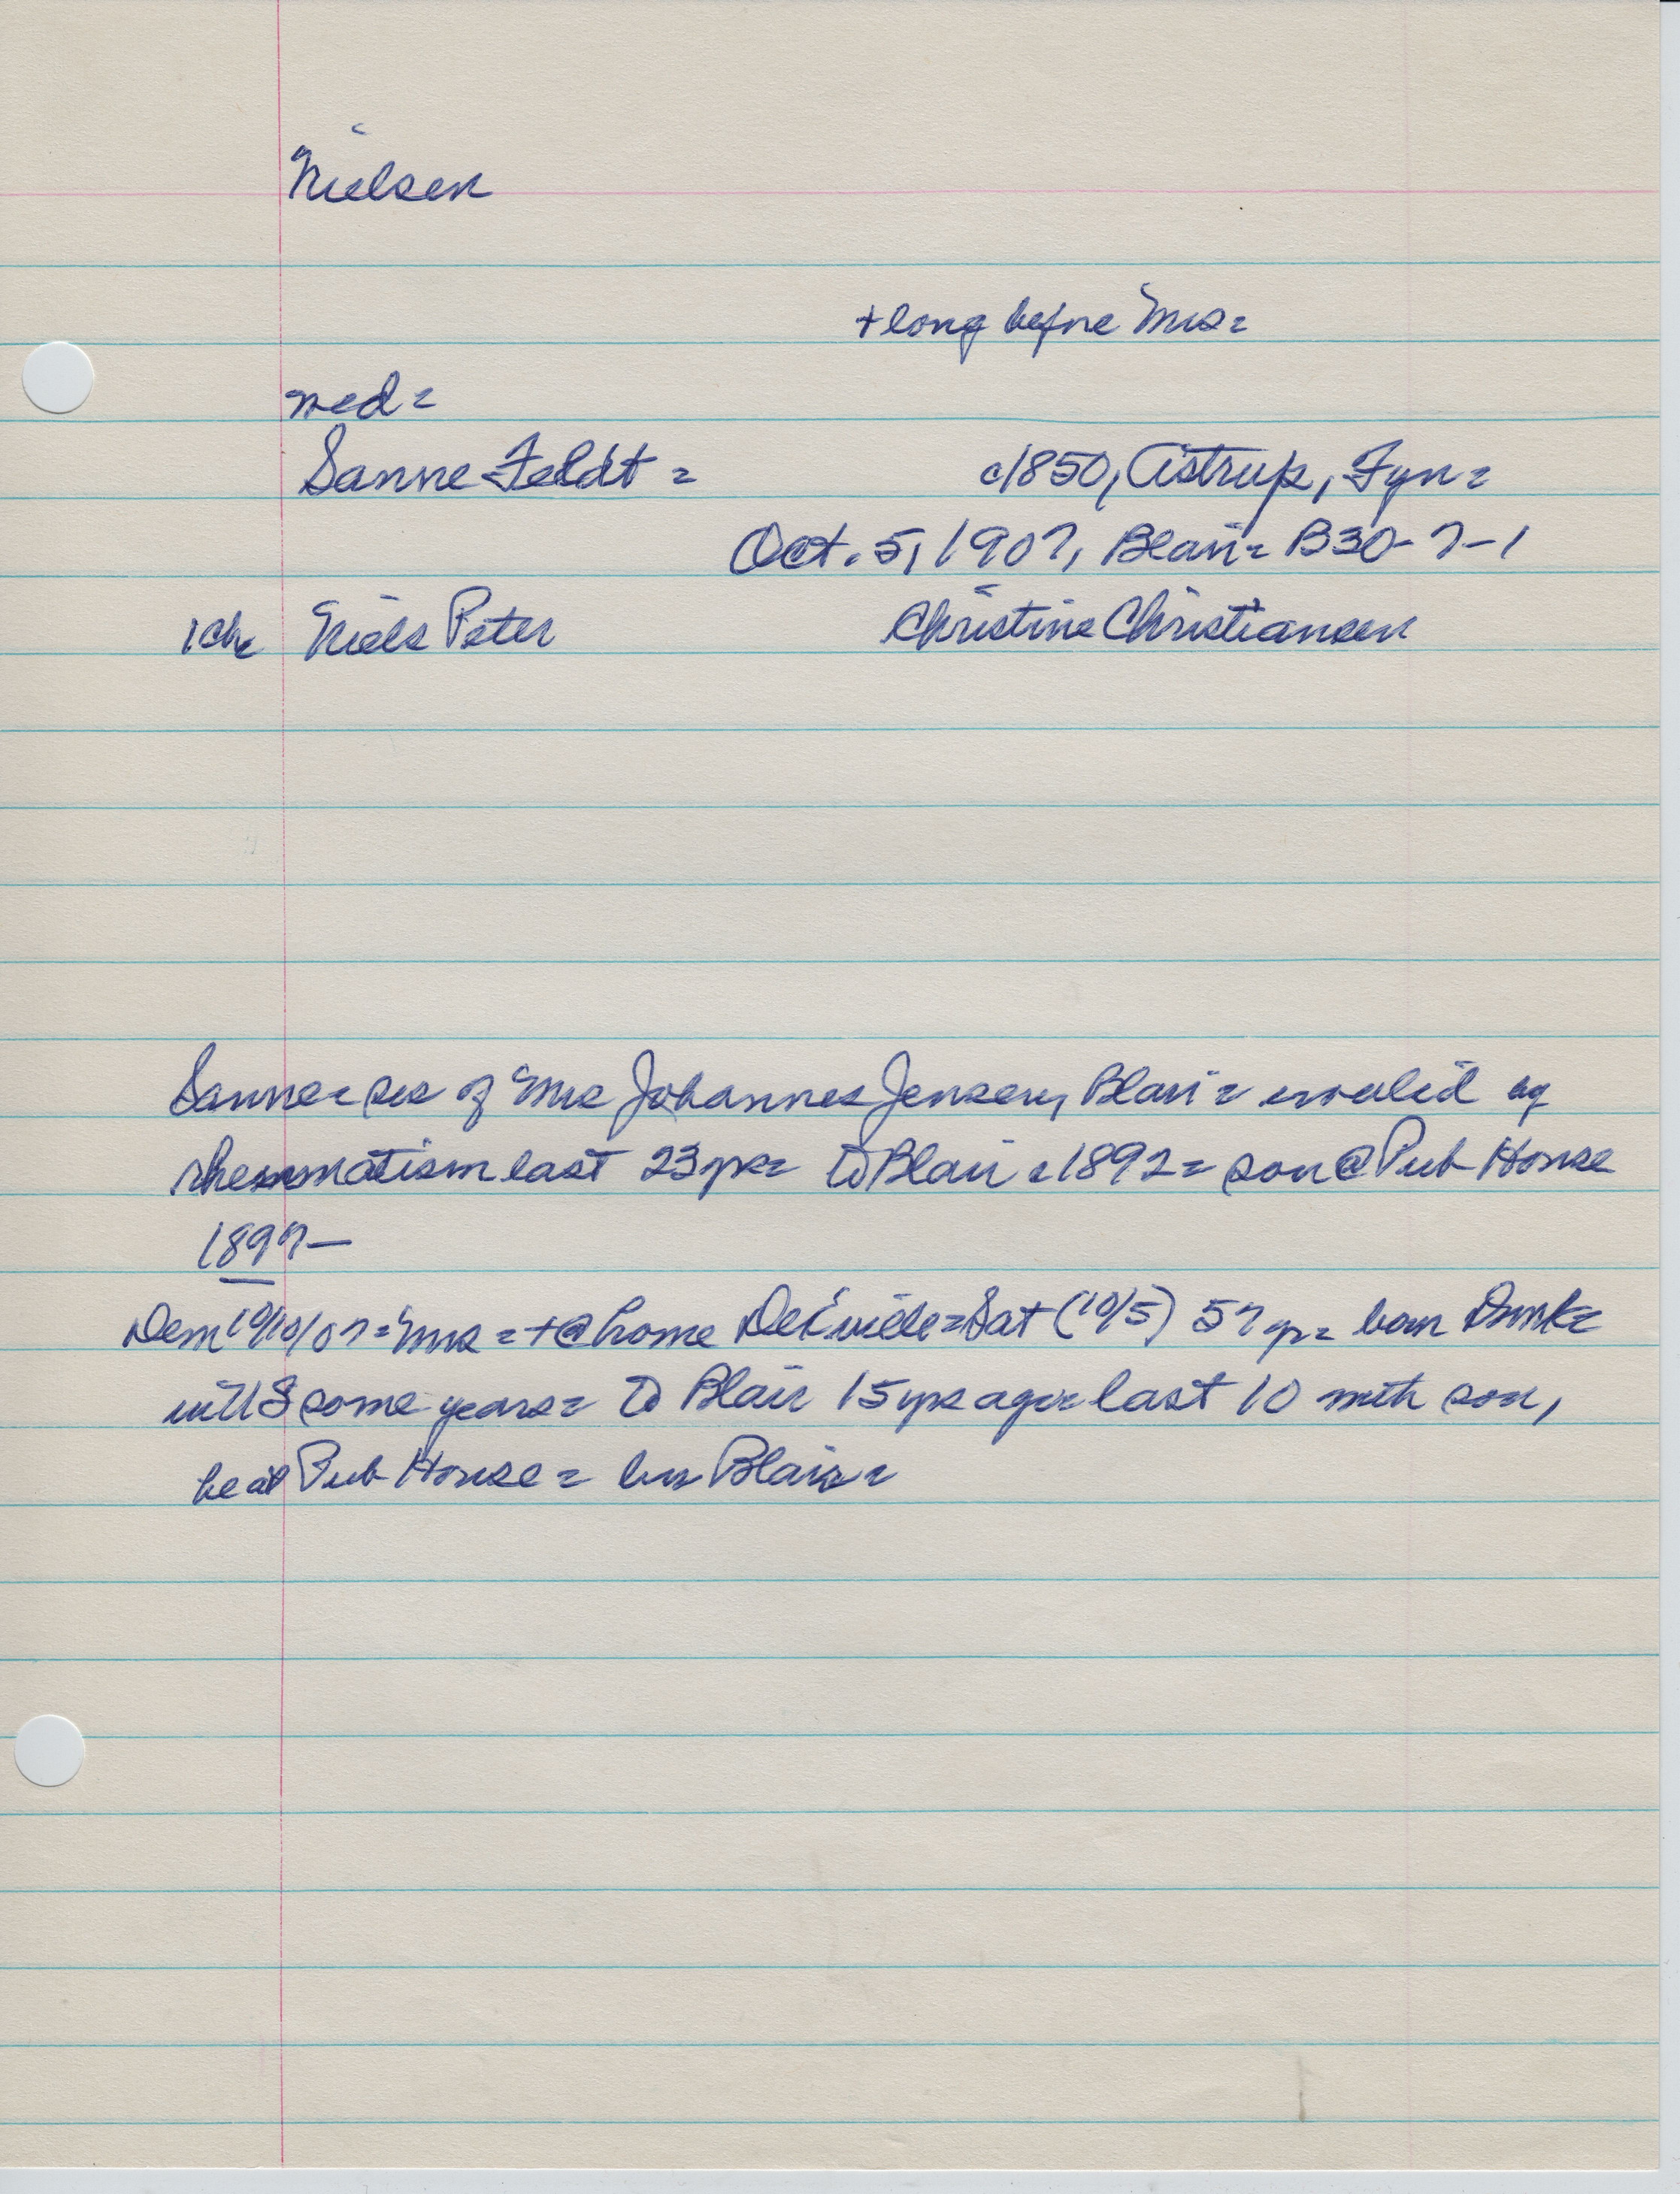 Nielsen
+ long before Mrs =
med =
Sanne Feldt =
c1850, Astrup, Fyn =
Oct. 5, 1907, Blair = B30-7-1
1 ch = Niels Peter
Christine Christiansen
Sanne = sis of Mrs Johannes Jensen, Blair = invalid by
rheummatism last 23 yrs = to Blair c1892 = son @ Pub House
1897 —
Dem 10/10/07 = Mrs = + @ home = Sat (10/5) 57 yr = born Dmk =
in US some years = to Blair 15 yrs ago = last 10 with son,
he at Pub House = bur Blair =